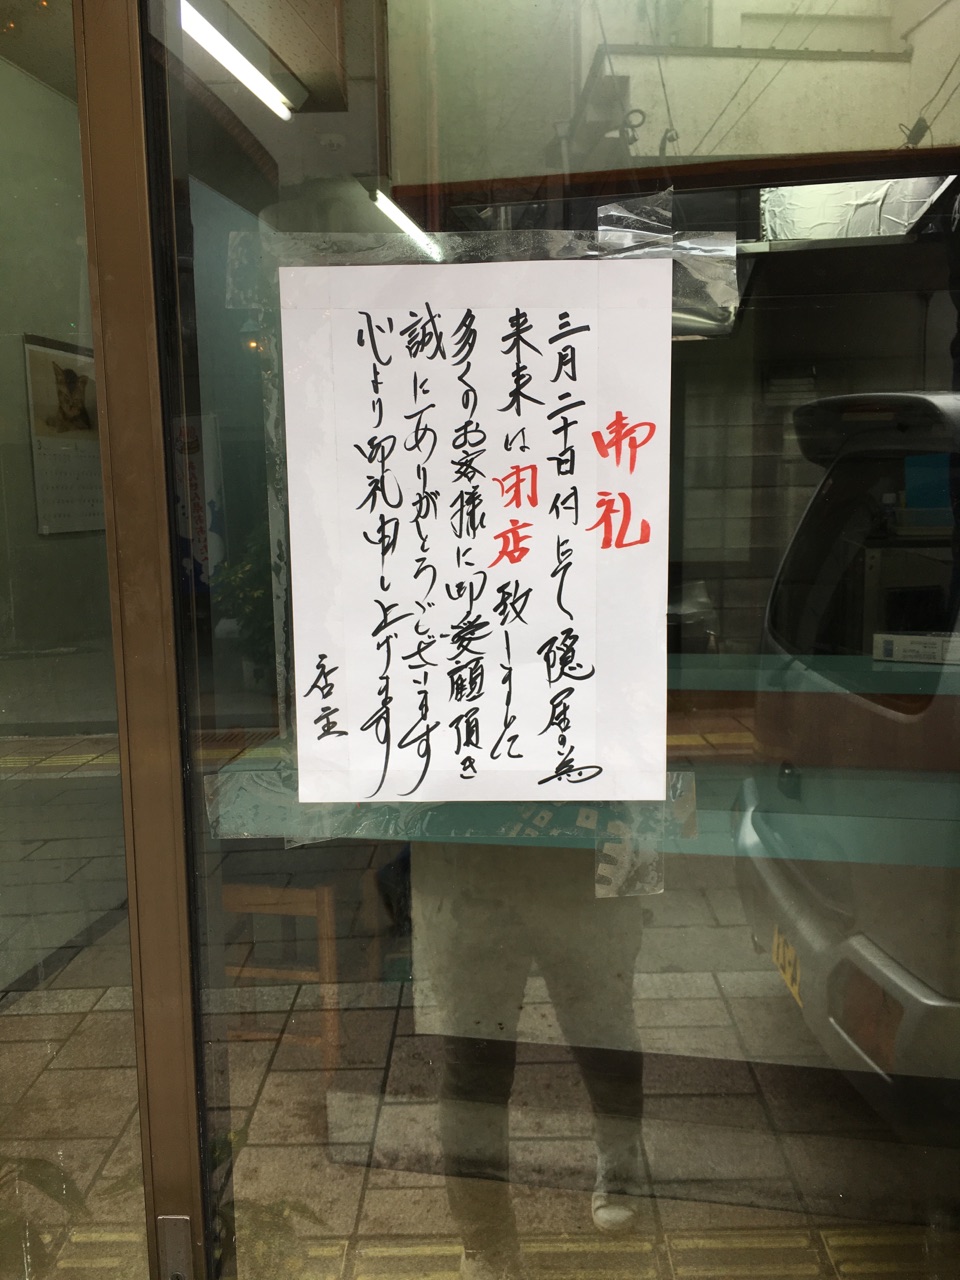 御礼
三月二十日付にて隠居の為
来来は閉店致しますとに
多くのお客様に御愛顧頂き
誠にありがとうございます
心より御礼申し上げます
店主